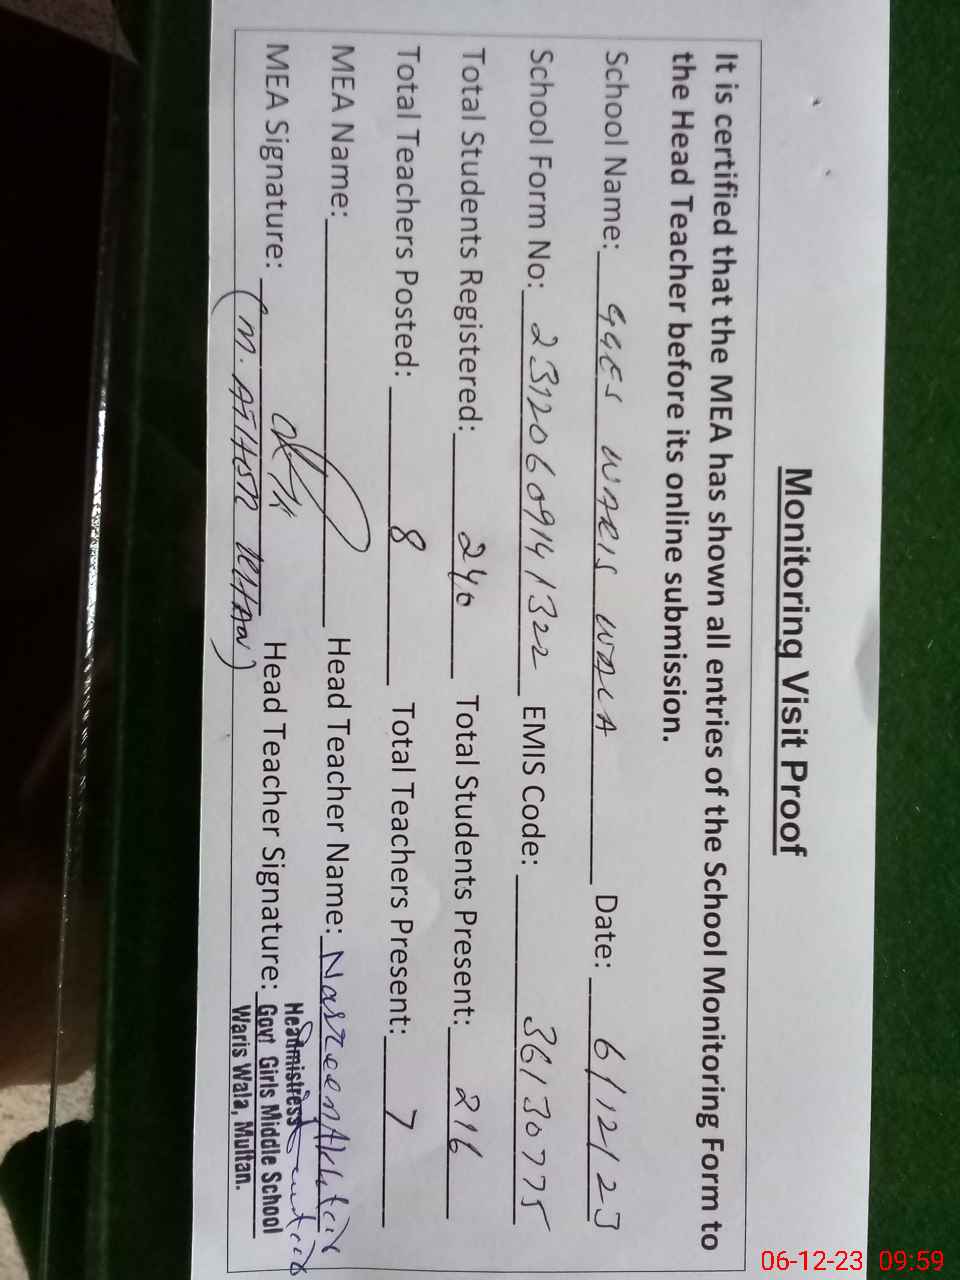 Monitoring Visit Proof
It is certified that the MEA has shown all entries of the School Monitoring Form to
the Head Teacher before its online submission.
School Name: GGES WARIS WALA Date: 6/12/23
School Form No: 23120609141322 EMIS Code: 36130775
Total Students Registered: 240 Total Students Present: 216
Total Teachers Posted: 8 Total Teachers Present: 7
MEA Name: Head Teacher Name: Nasreen Akhtar
MEA Signature: Head Teacher Signature:
(M. AJHER KHAN)
Headmistress
Govt Girls Middle School
Waris Wala, Multan.
06-12-23 09:59